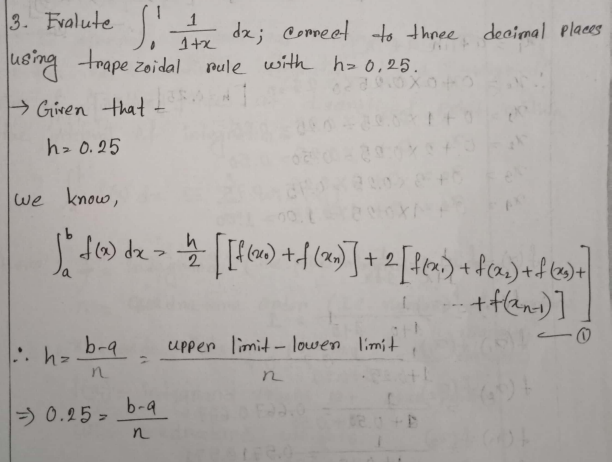 3. Evalute ∫₀¹ 1/(1+x) dx; correct to three decimal places
using trapezoidal rule with h= 0.25.
→ Given that -
h= 0.25
we know,
∫ₐᵇ f(x) dx = h/2 [[f(x₀) + f(xₙ)] + 2 [f(x₁) + f(x₂) + f(x₃) +
... + f(xₙ₋₁)]]
← ①
∴ h= (b-a)/n = (upper limit - lower limit)/n
⇒ 0.25 = (b-a)/n